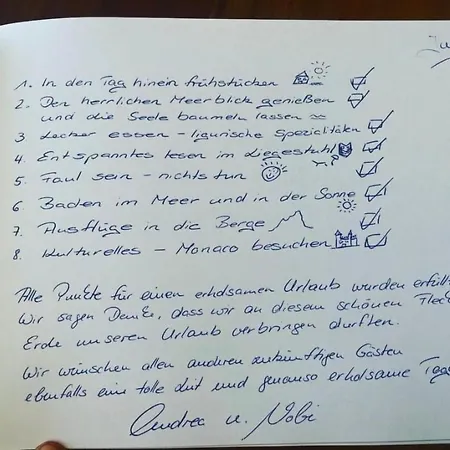 Ju
1. In den Tag hinein frühstücken
2. Den herrlichen Meerblick genießen
und die Seele baumeln lassen
3 Lecker essen - ligurische Spezialitäten
4. Entspanntes lesen im Liegestuhl
5. Faul sein - nichts tun
6. Baden im Meer und in der Sonne
7. Ausflüge in die Berge
8. Kulturelles - Monaco besuchen
Alle Punkte für einen erholsamen Urlaub wurden erfüll
Wir sagen Danke, dass wir an diesem schönen Fleck
Erde unseren Urlaub verbringen durften.
Wir wünschen allen anderen zukünftigen Gästen
ebenfalls eine tolle Zeit und genauso erholsame Tage
Andrea u. Nobi